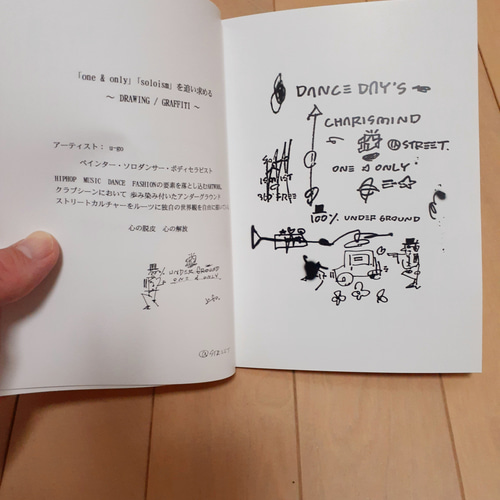 「one & only」「soloism」を追い求める
～ DRAWING / GRAFFITI ～
アーティスト： u-go
ペインター・ソロダンサー・ボディセラピスト
HIPHOP MUSIC DANCE FASHIONの要素を落とし込むARTWORK。
クラブシーンにおいて 歩み染み付いたアンダーグラウンド
ストリートカルチャーをルーツに独自の世界観を自由に描いて
心の脱皮　心の解放
100% UNDER GROUND
ONE & ONLY
DANCE DAY'S
CHARISMIND
STREET.
ONE & ONLY
100% UNDER GROUND